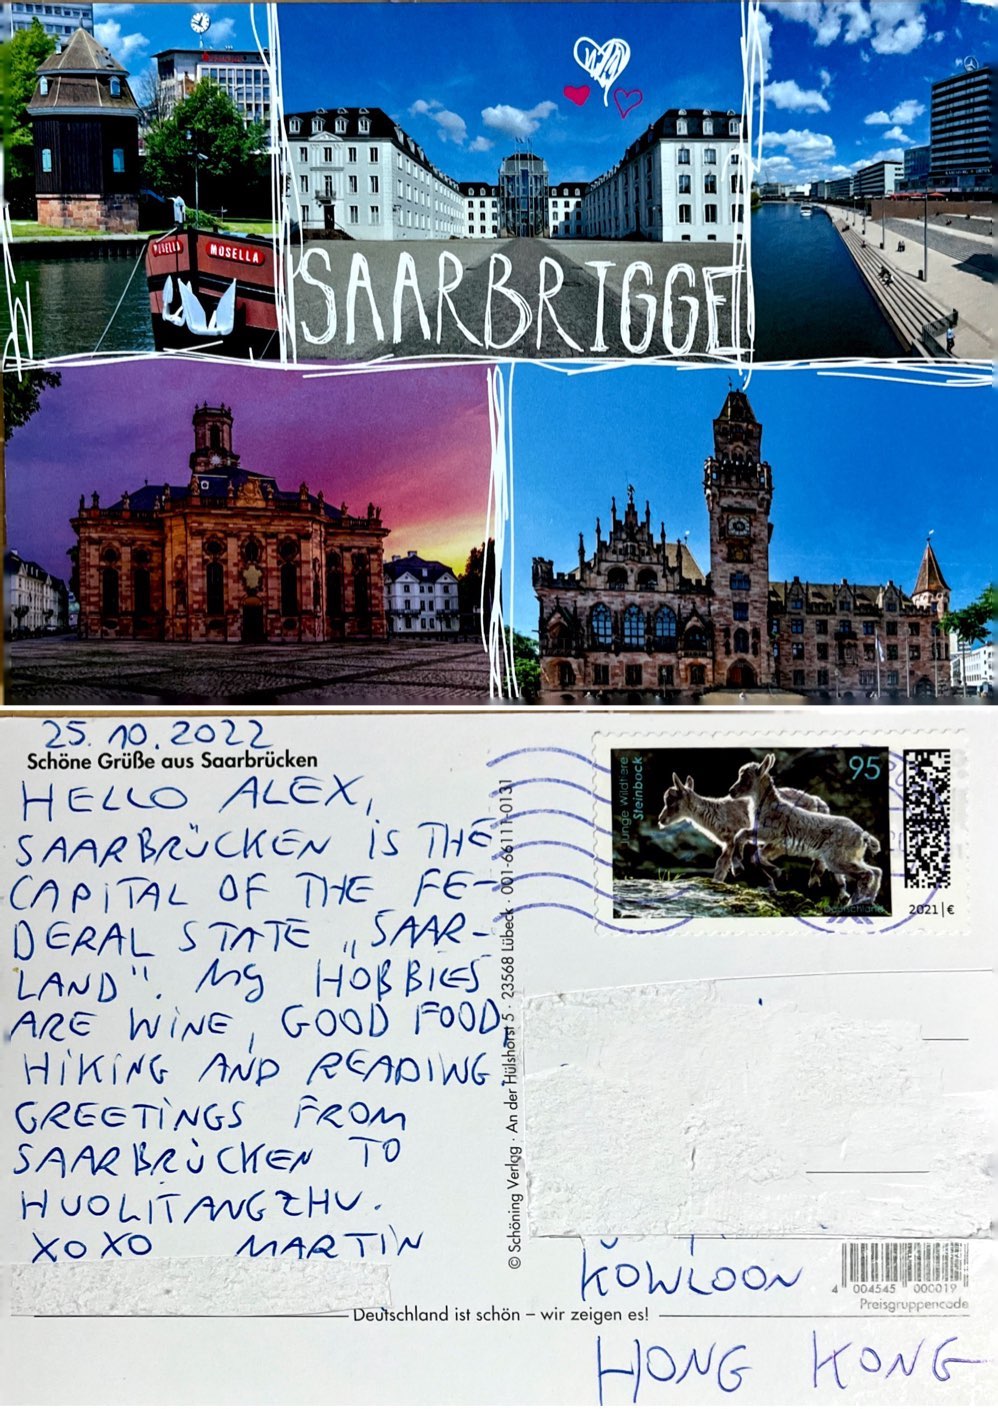 MOSELLA
MOSELLA
SAARBRIGGE
25.10.2022
Schöne Grüße aus Saarbrücken
HELLO ALEX,
SAARBRÜCKEN IS THE
CAPITAL OF THE FE-
DERAL STATE „SAAR-
LAND". MY HOBBIES
ARE WINE, GOOD FOOD,
HIKING AND READING.
GREETINGS FROM
SAARBRÜCKEN TO
HUOLITANGZHU.
XOXO MARTIN
© Schöning Verlag · An der Hülshorst 5 · 23568 Lübeck · 001-66111-0131
95
Junge Wildtiere
Steinbock
Deutschland
2021 | €
KOWLOON
HONG KONG
4 004545 000019
Preisgruppencode
Deutschland ist schön – wir zeigen es!